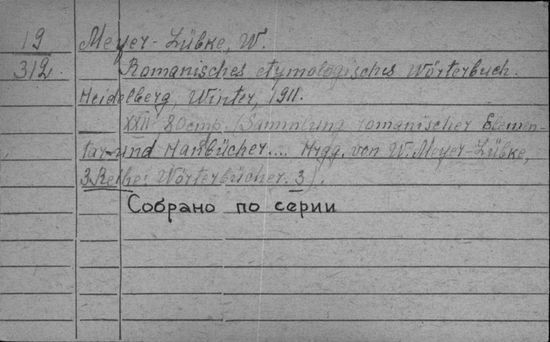 19
312.
Meyer-Lübke, W.
Romanisches etymologisches Wörterbuch.
Heidelberg, Winter, 1911.
XXII (Sammlung romanischer Elemen-
tar- und Hanbücher.... Hrgg. von W. Meyer-Lübke,
3 Reihe: Wörterbücher. 3).
Собрано по серии